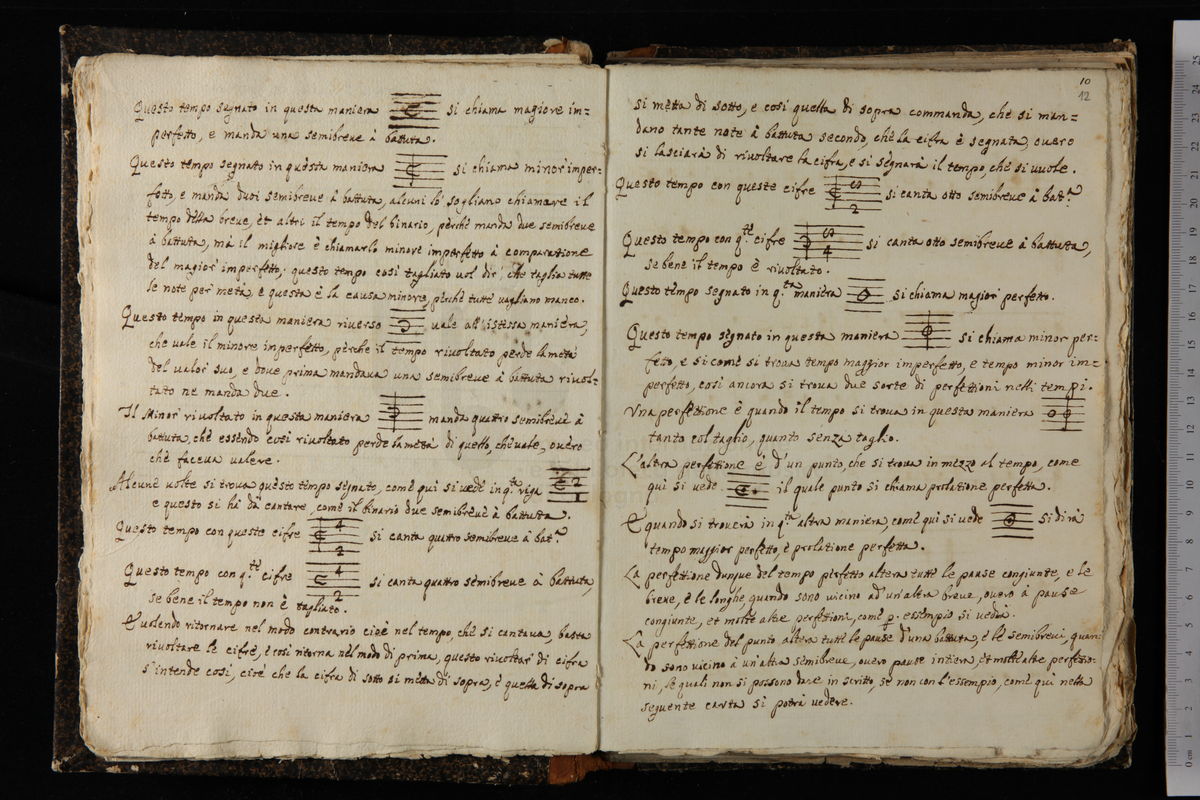 Questo tempo segnato in questa maniera si chiama magiore im=
perfetto, e manda una semibreve à battuta.
Questo tempo segnato in questa maniera si chiama minor imper-
fetto, e manda duoi semibreve à battuta, alcuni lo sogliano chiamare il
tempo della breve, et altri il tempo del binario, perchè manda due semibreve
à battuta, mà il migliore è chiamarlo minore imperfetto à comparattione
del magior imperfetto; questo tempo così tagliato vol dir, che taglia tutte
le note per metà, e questa è la causa minore, perche tutte vagliano manco.
Questo tempo in questa maniera riverso vale all'istessa maniera,
che vale il minore imperfetto, perche il tempo rivoltato perde la metà
del valor suo, e dove prima mandava una semibreve à battuta rivol-
tato ne manda due.
Il Minor rivoltato in questa maniera manda quattro semibreve à
battuta, chè essendo così rivoltato perde la metà di quello, che vale, overo
che faceva valere.
Alcune volte si trova questo tempo segnato, come qui si vede in q.ta riga 2
e questo si hà da cantare, come il binario due semibreve à battuta.
Questo tempo con queste cifre 4 2 si canta quattro semibreve à bat.a
Questo tempo con q.te cifre 4 2 si canta quattro semibreve à battuta,
se bene il tempo non è tagliato.
E volendo ritornare nel modo contrario cioè nel tempo, chè si cantava, basta
rivoltare le cifre, è così ritorna nel modo di prima, questo rivoltar di cifra
s'intende così, cioè che la cifra di sotto si metta di sopra, è quella di sopra
10
12
si metta di sotto, e così quella di sopra commanda, che si man=
dano tante note à battuta secondo, chè la cifra è segnata, overo
si lasciarà di rivoltare la cifra, e si segnarà il tempo, chè si vuole.
Questo tempo con queste cifre 8 2 si canta otto semibreve à bat.a
Questo tempo con q.te cifre 8 4 si canta otto semibreve à battuta,
se bene il tempo è rivoltato.
Questo tempo segnato in q.ta maniera si chiama magior perfetto.
Questo tempo segnato in questa maniera si chiama minor per-
fetto, e si come si trova tempo maggior imperfetto, e tempo minor im=
perfetto, così ancora si trova due sorte di perfettioni nelli tempi.
Una perfettione è quando il tempo si trova in questa maniera
tanto col taglio, quanto senza taglio.
L'altra perfettione è d'un punto, che si trova in mezzo al tempo, come
qui si vede il quale punto si chiama prolatione perfetta.
E quando si troverà in q.ta altra maniera, come qui si vede si dirà
tempo maggior perfetto, è prolatione perfetta.
La perfettione dunque del tempo perfetto altera tutte le pause congiunte, e le
breve, è le longhe, quando sono vicino ad un'altra breve, overo à pause
congiunte, et molte altre perfettioni, come p. essempio si vedrà.
La perfettione del punto altera tutte le pause d'una battuta, è le semibrevi, quan
do sono vicino à un'altra semibreve, overo pause intiera, et molt'altre perfettio-
ni, le quali non si possono dare in scritto, se non con l'essempio, come qui nella
seguente carta si potrà vedere.